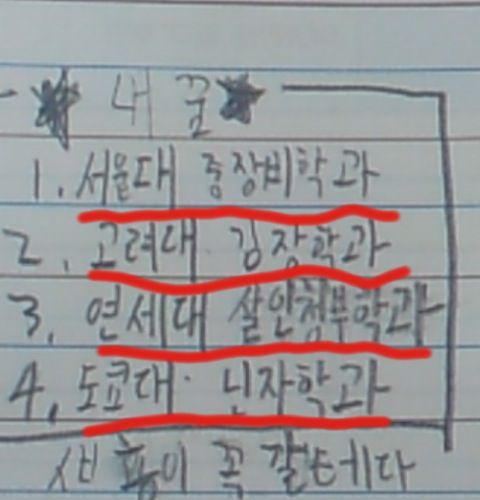 ★ 내 꿈 ★
1. 서울대 중장비학과
2. 고려대 김장학과
3. 연세대 살인청부학과
4. 도쿄대 닌자학과
꼭 갈테다